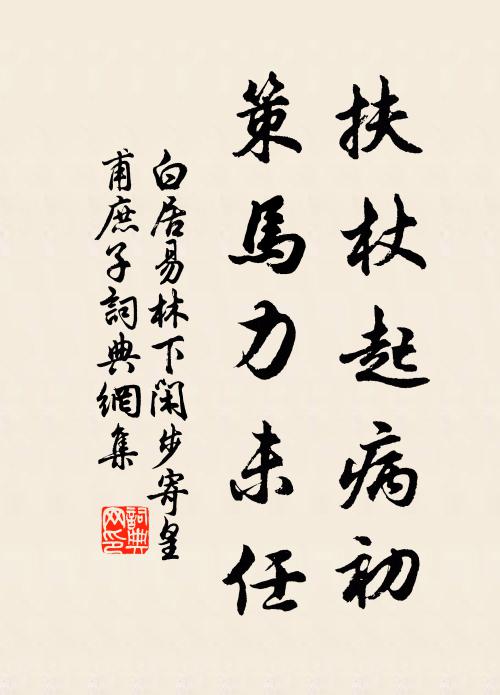 扶杖起病初
策馬力未任
白居易林下閑步寄皇
甫庶子詞典網集
詞典网印